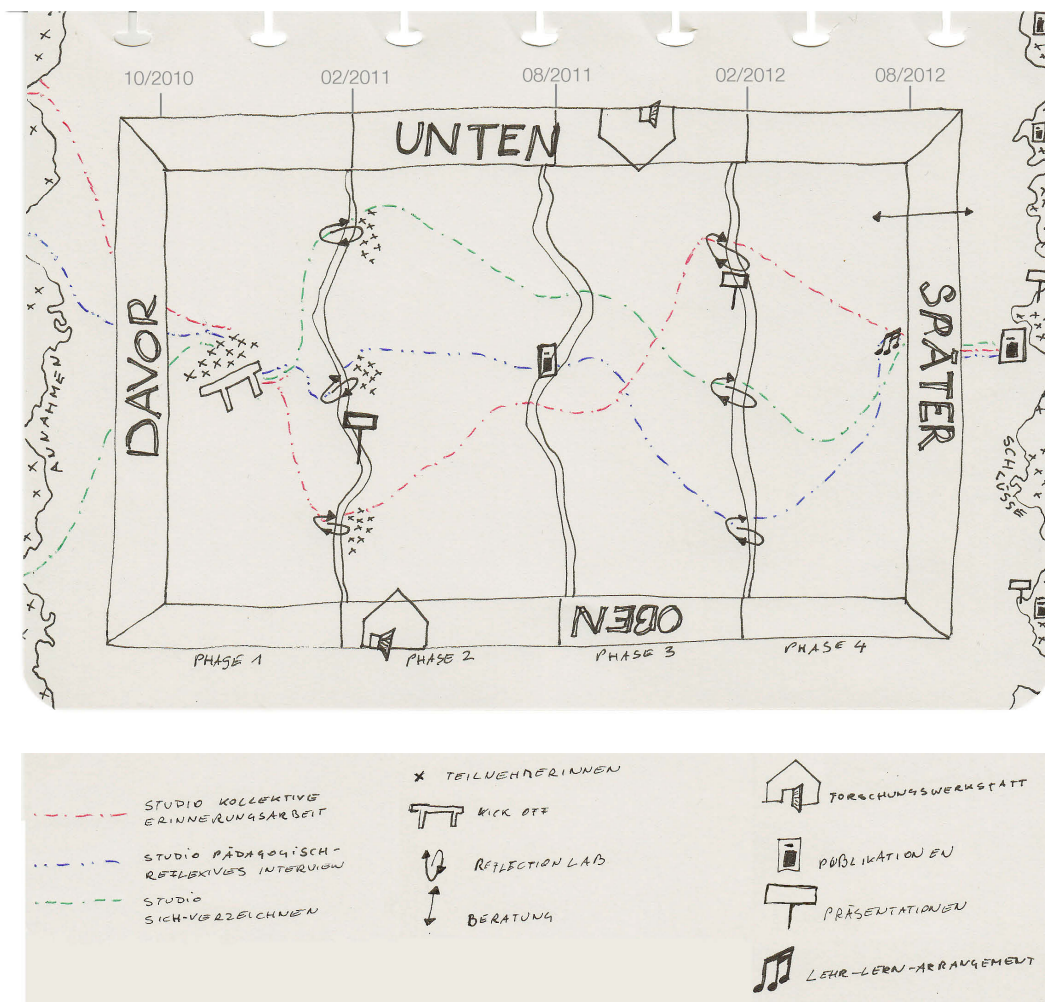 10/2010
02/2011
08/2011
02/2012
08/2012
UNTEN
DAVOR
SPÄTER
ANNAHMEN
SCHLÜSSE
OBEN
PHASE 1
PHASE 2
PHASE 3
PHASE 4
STUDIO KOLLEKTIVE
ERINNERUNGSARBEIT
STUDIO PÄDAGOGISCH-
REFLEXIVES INTERVIEW
STUDIO
SICH-VERZEICHNEN
TEILNEHMERINNEN
KICK OFF
REFLECTION LAB
BERATUNG
FORSCHUNGSWERKSTATT
PUBLIKATIONEN
PRÄSENTATIONEN
LEHR-LERN-ARRANGEMENT